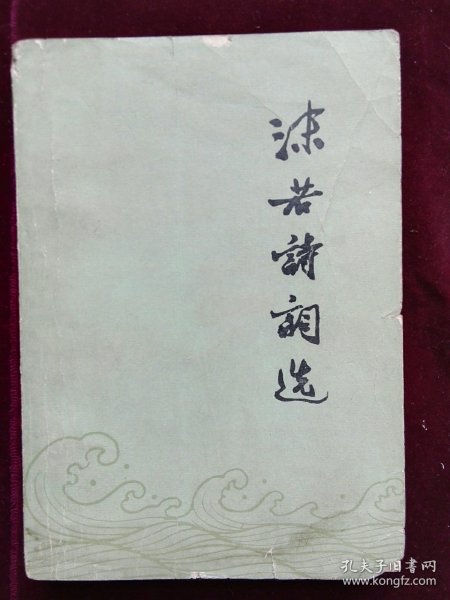 沫若詩詞选
孔夫子旧书网
www.kongfz.com